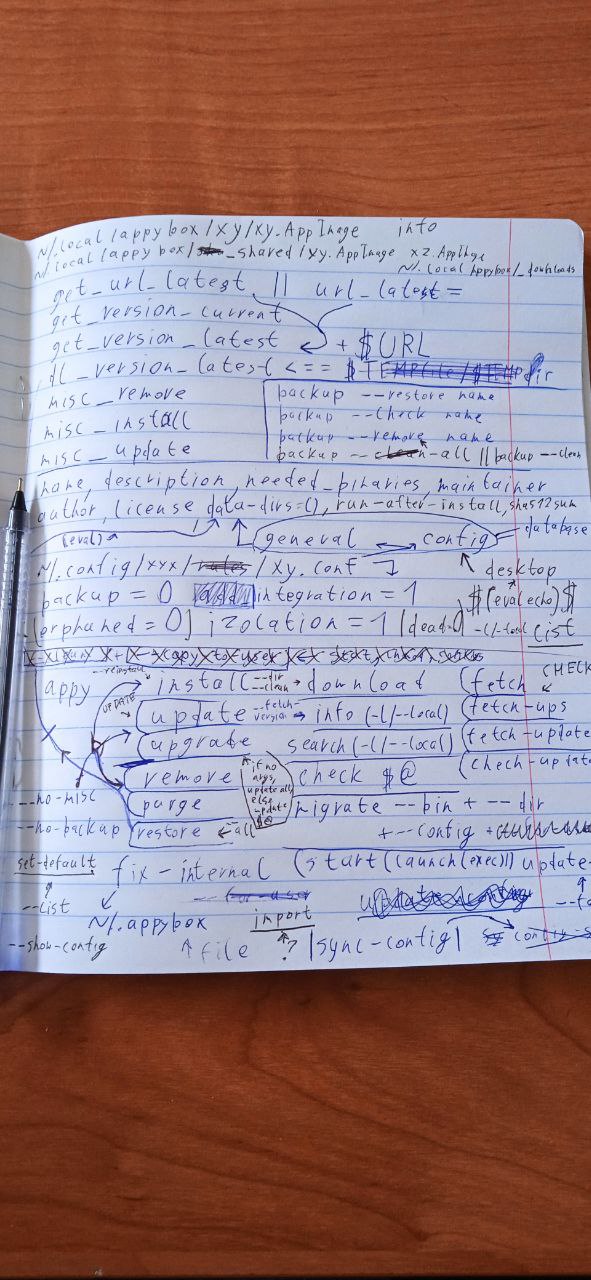 ~/.local/appybox/xy/xy.AppImage info
~/.local/appybox/_shared/xy.AppImage xz.AppImge
~/.local/appybox/_downloads
get_url_latest || url_latest =
get_version_current
get_version_latest + $URL
dl_version_latest <== $TEMPdir
misc_remove
misc_install
misc_update
backup --restore name
backup --check name
backup --remove name
backup --clean-all || backup --clean
name, description, needed_binaries, maintainer
author, license data-dirs=(), run-after-install, sha512sum
(eval) general config database
~/.config/xyx/ /xy.conf desktop
backup = 0 integration = 1 $(eval echo)$
[orphaned = 0] izolation = 1 -l/--local list
--reinstall CHECK
appy install --dir --clean download (fetch
UPDATE
update --fetch-version info (-l/--local) (fetch-ups
upgrade search (-l/--local) (fetch-update
remove if no args, update all, else update $@ check $@
--no-misc purge migrate --bin + --dir
--no-backup restore --all + --config +
set-default fix-internal (start(launch(exec))) update-
--list ~/.appybox import
--show-config file ? |sync-config|